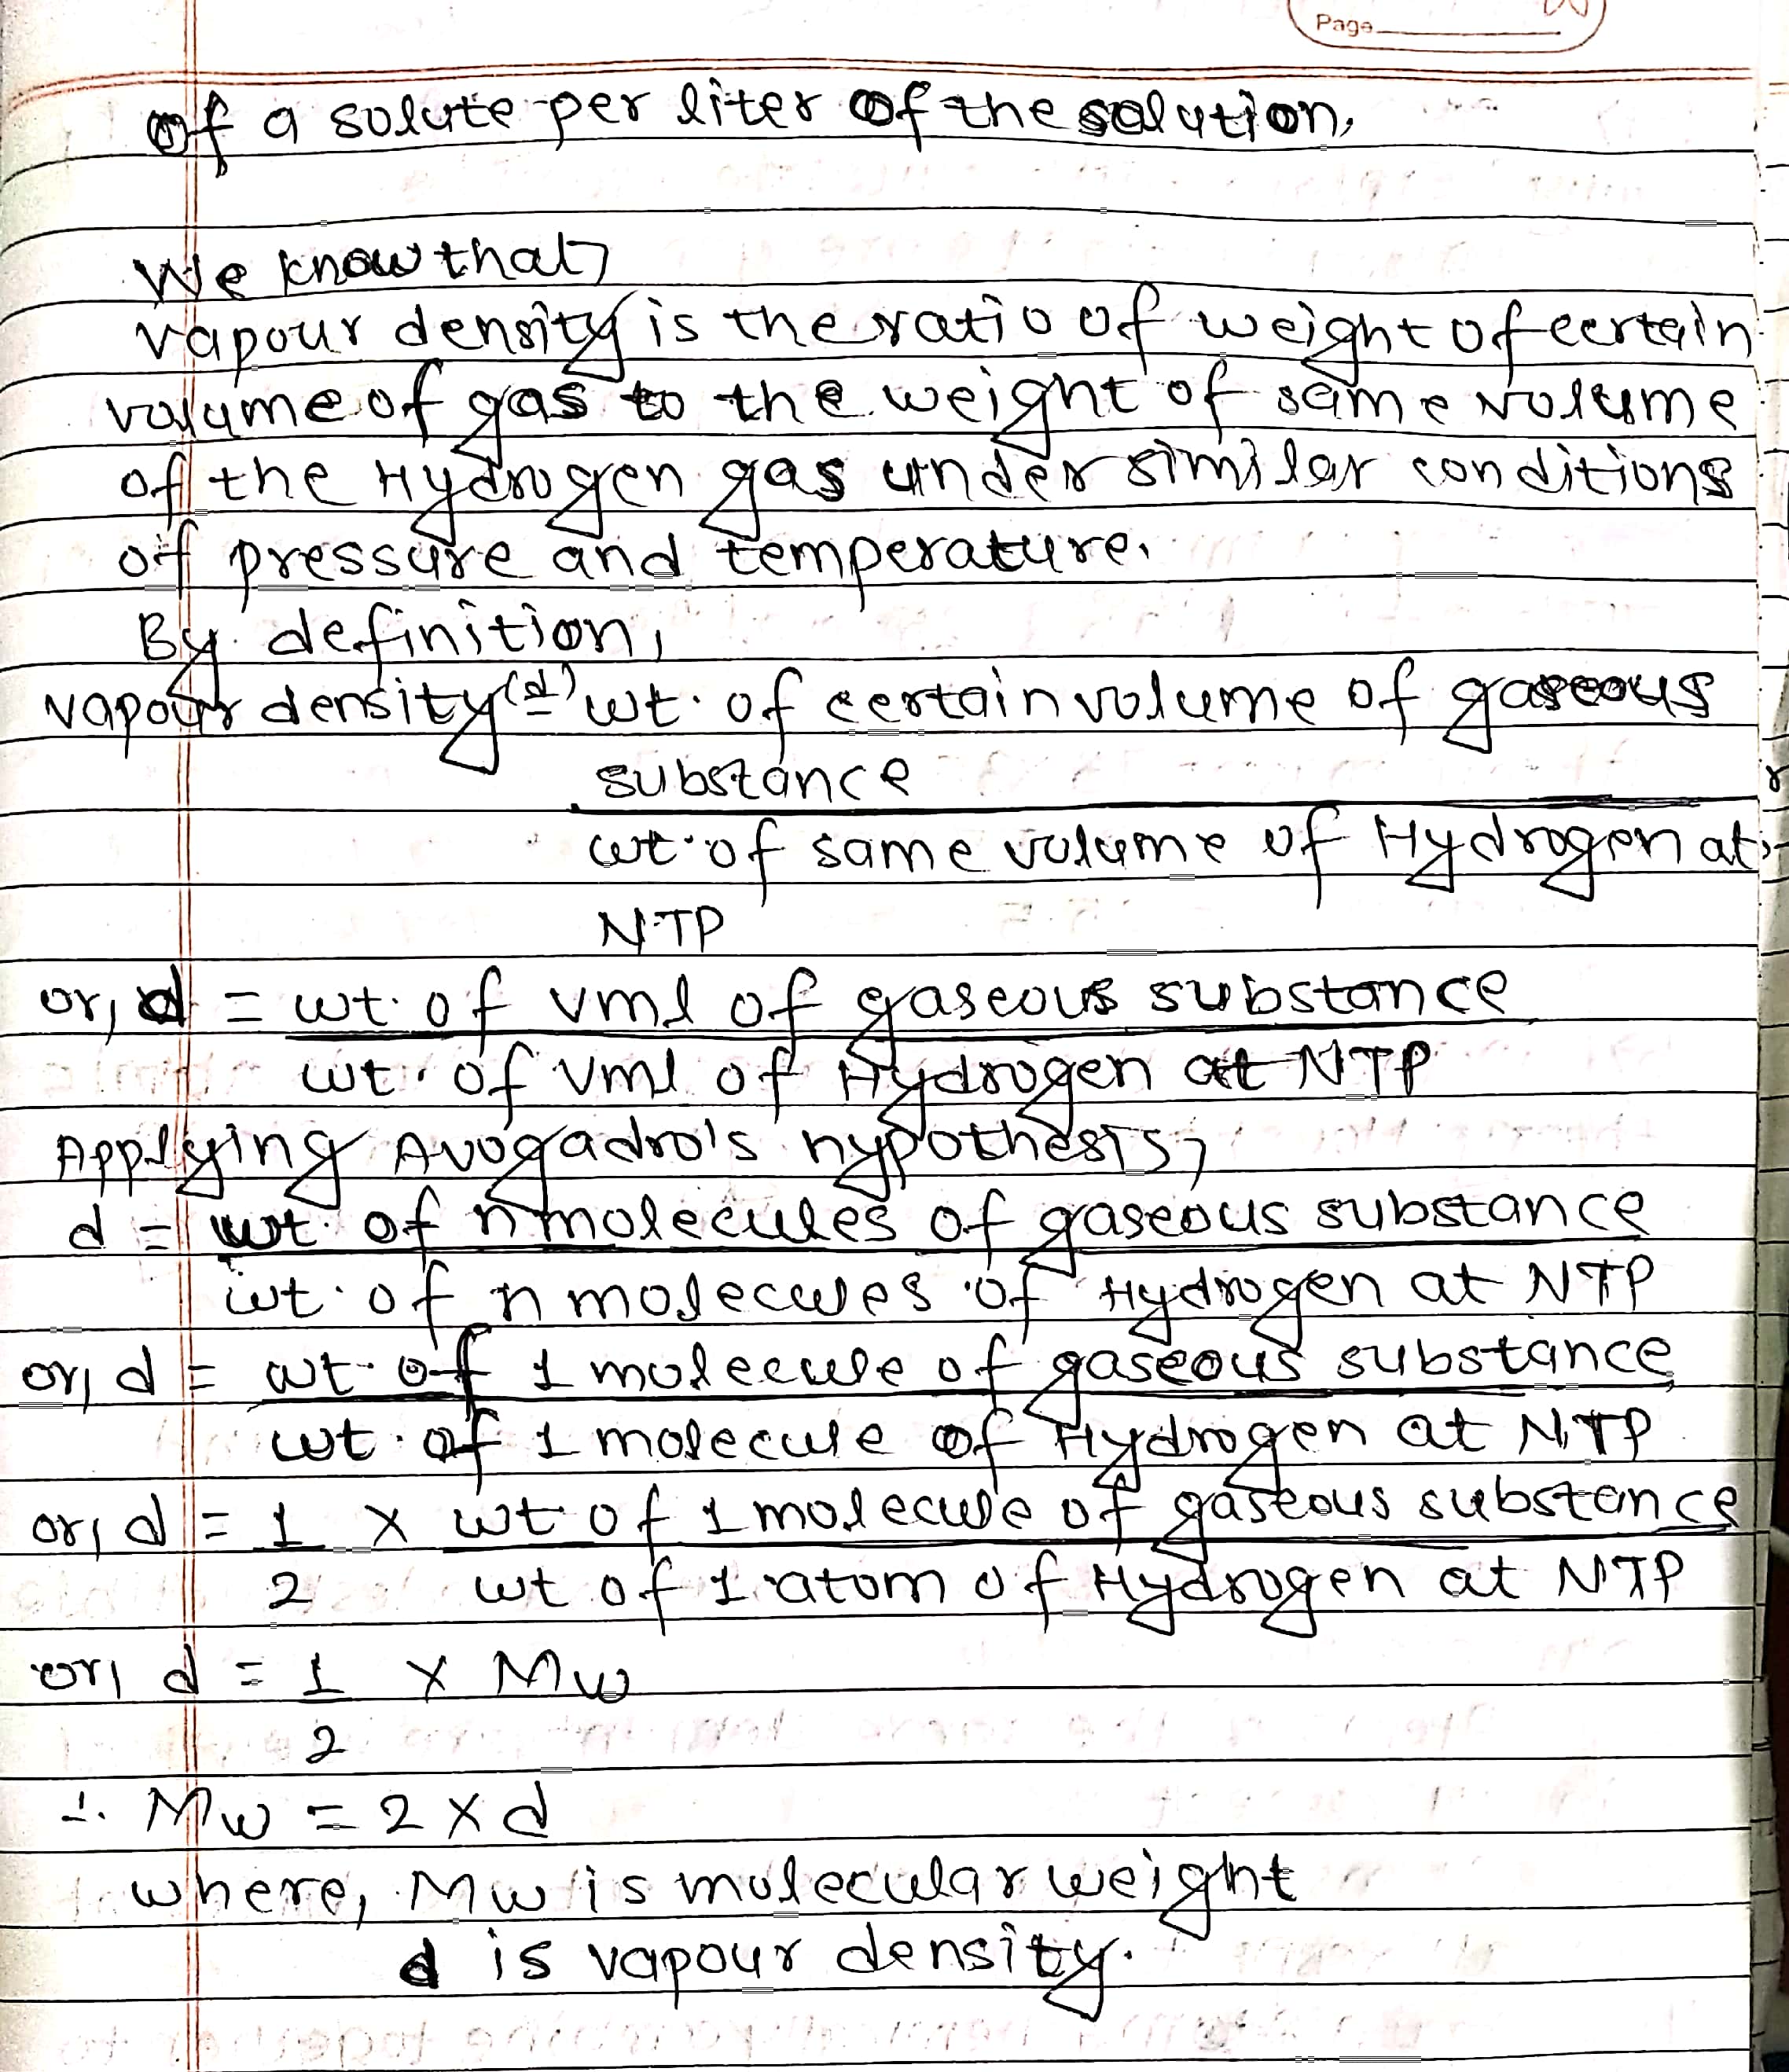 Page
of a solute per liter of the solution.
We know that,
vapour density is the ratio of weight of certain
volume of gas to the weight of same volume
of the Hydrogen gas under similar conditions
of pressure and temperature.
By definition,
vapour density(d) = wt. of certain volume of gaseous
substance
wt. of same volume of Hydrogen at
NTP
or, d = wt. of vml of gaseous substance
wt. of vml of Hydrogen at NTP
Applying Avogadro's hypothesis,
d = wt. of n molecules of gaseous substance
wt. of n molecules of Hydrogen at NTP
or, d = wt. of 1 molecule of gaseous substance
wt. of 1 molecule of Hydrogen at NTP
or, d = 1 × wt of 1 molecule of gaseous substance
2 wt of 1 atom of Hydrogen at NTP
or, d = 1 × Mw
2
∴ Mw = 2 × d
where, Mw is molecular weight
d is vapour density.